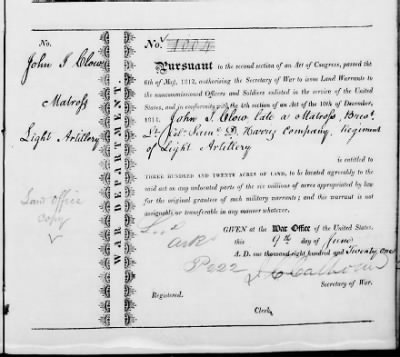 No.
John I Clow
Matross
Light Artillery
Land office
Copy
WAR DEPARTMENT.
No. 1004
Pursuant to the second section of an Act of Congress, passed the
6th of May, 1812, authorising the Secretary of War to issue Land Warrants to
the noncommissioned Officers and Soldiers enlisted in the service of the United
States, and in conformity with the 4th section of an Act of the 10th of December,
1814. John I. Clow late a Matross, Brev.
Lt. Col. D. Company, Regiment
of Light Artillery
is entitled to
THREE HUNDRED AND TWENTY ACRES OF LAND, to be located agreeably to the
said act on any unlocated parts of the six millions of acres appropriated by law
for the original grantees of such military warrants; and this warrant is not
assignable or transferable in any manner whatever.
GIVEN at the War Office of the United States,
this 9th day of June
A. D. one thousand eight hundred and Twenty one
Ark
P222
J. C. Calhoun
Secretary of War.
Registered.
Clerk.